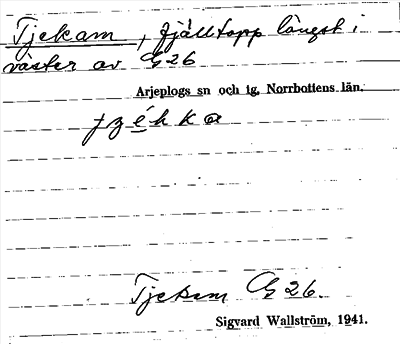 Tjekam, fjälltopp längst i
väster av G 26
Arjeplogs sn och tg, Norrbottens län.
Tjekam G 26.
Sigvard Wallström, 1941.